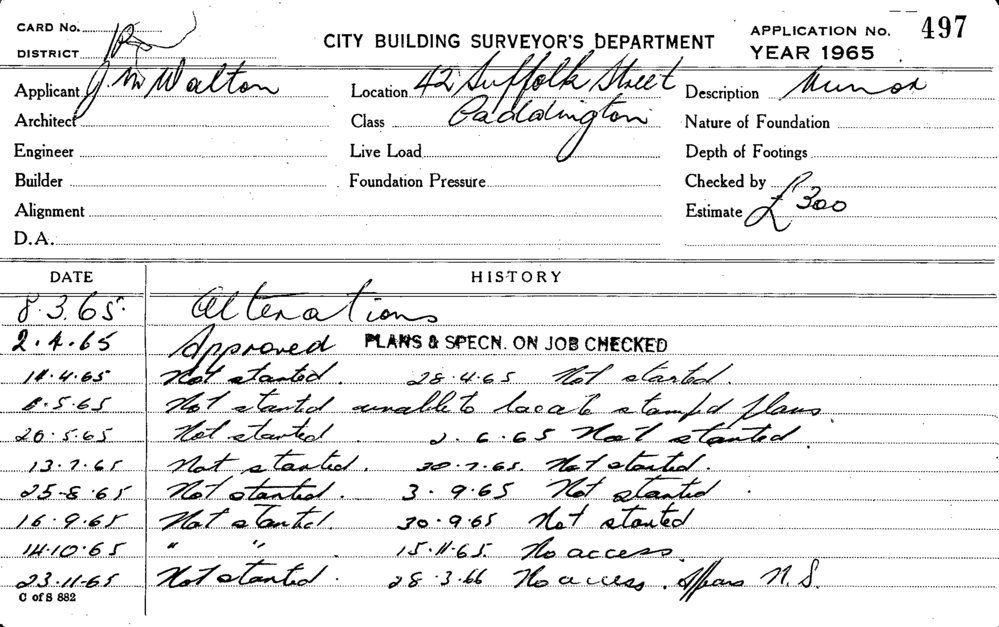 CARD No.
DISTRICT
CITY BUILDING SURVEYOR'S DEPARTMENT
APPLICATION No. 497
YEAR 1965
Applicant J. M. Walton
Location 42 Suffolk Street
Description Minor
Architect
Class Paddington
Nature of Foundation
Engineer
Live Load
Depth of Footings
Builder
Foundation Pressure
Checked by
Alignment
Estimate £300
D.A.
DATE HISTORY
8.3.65. Alterations
2.4.65 Approved PLANS & SPECN. ON JOB CHECKED
.4.65 Not started. 28.4.65 Not started.
.5.65 Not started unable to locate stamp'd plans
20.5.65 Not started 2.6.65 Not started
13.7.65 Not started. 30.7.65. Not started.
25.8.65 Not started. 3.9.65 Not started.
16.9.65 Not started. 30.9.65 Not started
14.10.65 " " 15.11.65. No access
23.11.65 Not started. 28.3.66 No access. Appears N.S.
C of S 882